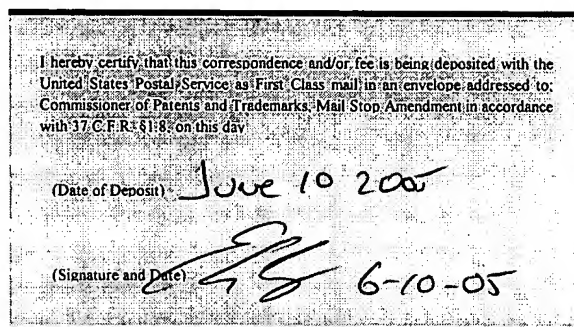 I hereby certify that this correspondence and/or fee is being deposited with the
United States Postal Service as First Class mail in an envelope addressed to:
Commissioner of Patents and Trademarks, Mail Stop Amendment in accordance
with 37 C.F.R. §1.8, on this day
(Date of Deposit) June 10 2005
(Signature and Date) 6-10-05